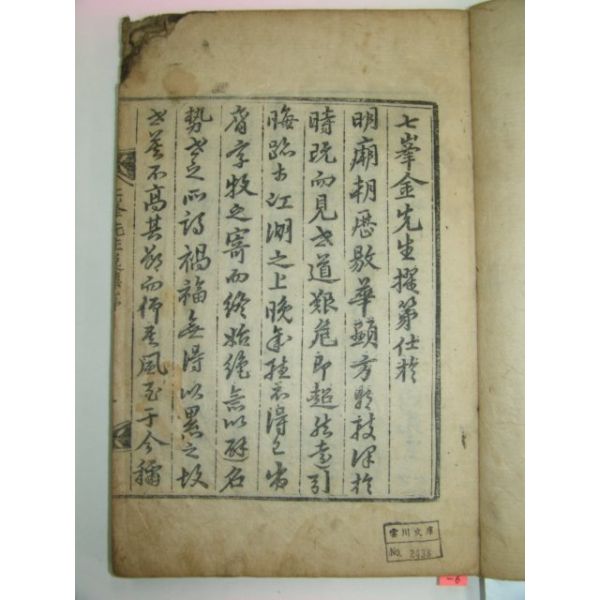 七峯金先生擢第仕於
明廟朝歷敭華顯方駸駸津於
時旣而見世道艱危卽超然遠引
晦跡于江湖之上晚年雖不得已出
膺字牧之寄而終始絶意以避名
勢者之所謂禍福無得以累之故
世莫不高其節而仰其風至于今稱
七峯先生逸集序
雲川文庫
No. 2438
-6